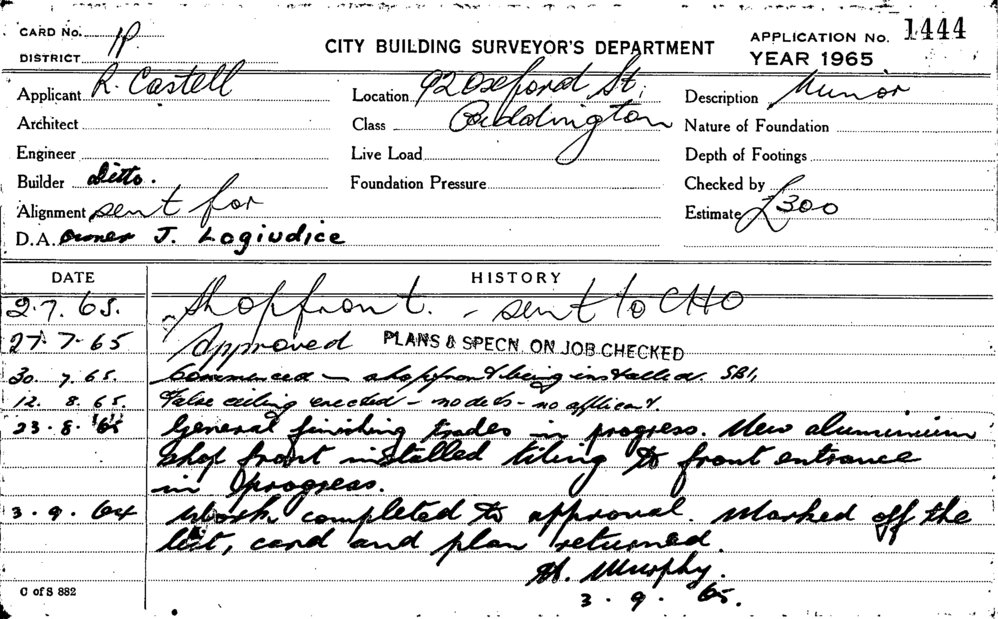 CARD No. 1P
DISTRICT
CITY BUILDING SURVEYOR'S DEPARTMENT
APPLICATION No. 1444
YEAR 1965
Applicant R. Castell
Location 92 Oxford St,
Description Minor
Architect
Class Paddington
Nature of Foundation
Engineer
Live Load
Depth of Footings
Builder Ditto.
Foundation Pressure
Checked by
Alignment sent for
Estimate £300
D.A. Owner J. Logiudice
DATE HISTORY
2.7.65. Shopfront. - sent to CHO
27.7.65 Approved PLANS & SPECN. ON JOB CHECKED
30.7.65. Commenced - shopfront being installed. SB1,
12.8.65. False ceiling erected - no dets - no applicant.
23.8.65 General finishing trades in progress. New aluminium
shop front installed tiling to front entrance
in progress.
3.9.64 Work completed to approval. Marked off the
list, card and plan returned.
H. Murphy.
3.9.65.
C of S 882